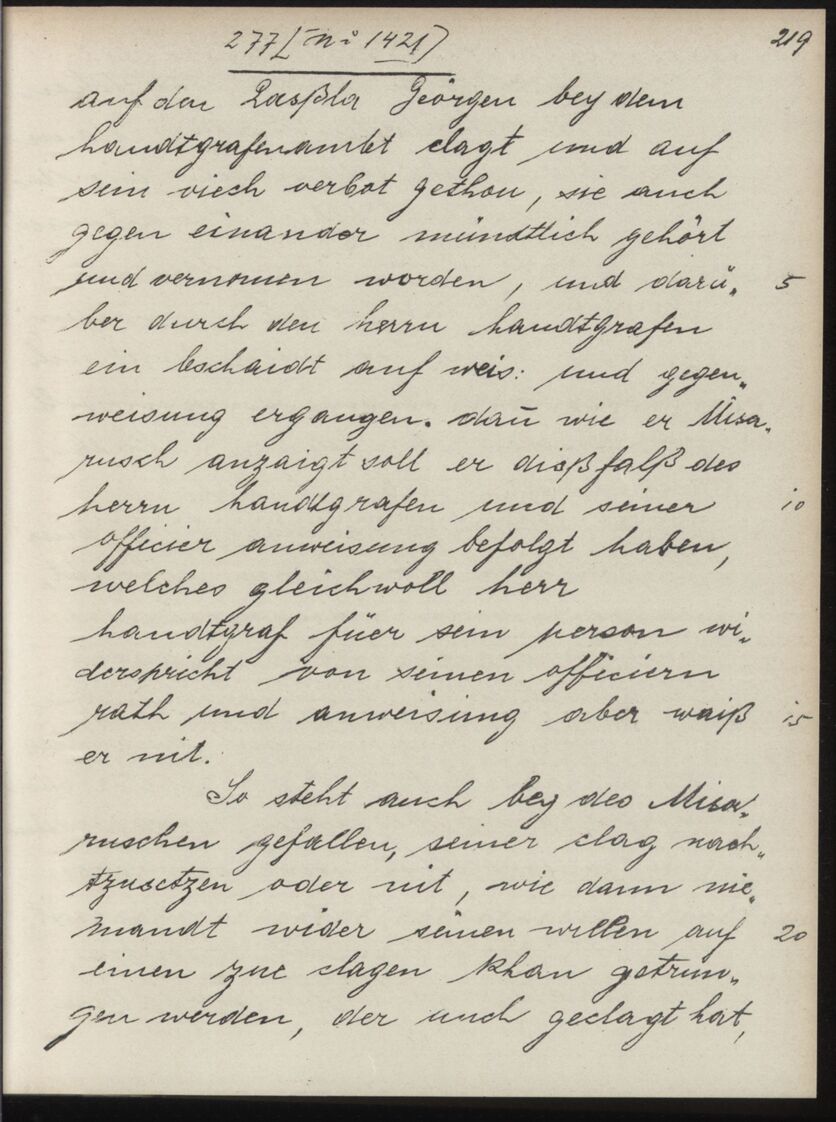 277 [No 1421]
219
auf den Lasßla Geörgen bey dem
handtgrafenambt clagt und auf
sein viech verbot gethon, sie auch
gegen einander mündtlich gehört
und vernomen worden, und darü„ 5
ber durch den herrn handtgrafen
ein bschaidt auf weis: und gegen„
weisung ergangen. dan̄ wie er Misa„
rusch anzaigt soll er dießfalß des
herrn handtgrafen und seiner 10
officier anweisung befolgt haben,
welches gleichwoll herr
handtgraf füer sein person wi„
derspricht von seinen officiern
rath und anweisung aber waiß 15
er nit.
So steht auch bey des Misa„
ruschen gefallen, seiner clag nach„
tzusetzen oder nit, wie dann nie„
mandt wider seinen willen auf 20
einen zue clagen khan getrun„
gen werden, der auch geclagt hat,